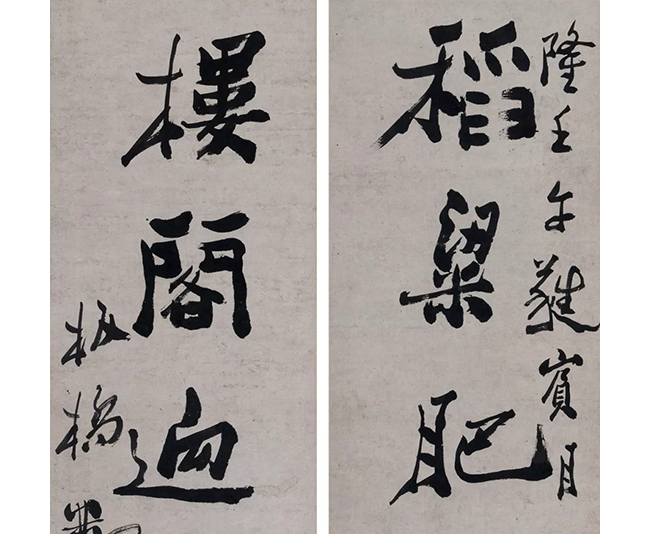 隆壬午蕤賓月
稻粱肥
樓閣逈
板橋